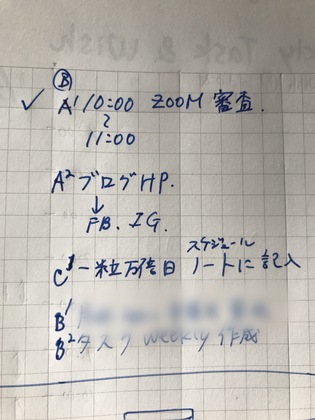 Ⓑ
✓ A¹ 10:00 ZOOM 審査.
～
11:00
A² ブログHP.
↓
FB. IG.
スケジュール
C¹ 一粒万倍日 ノートに記入
B¹
B² タスク Weekly 作成